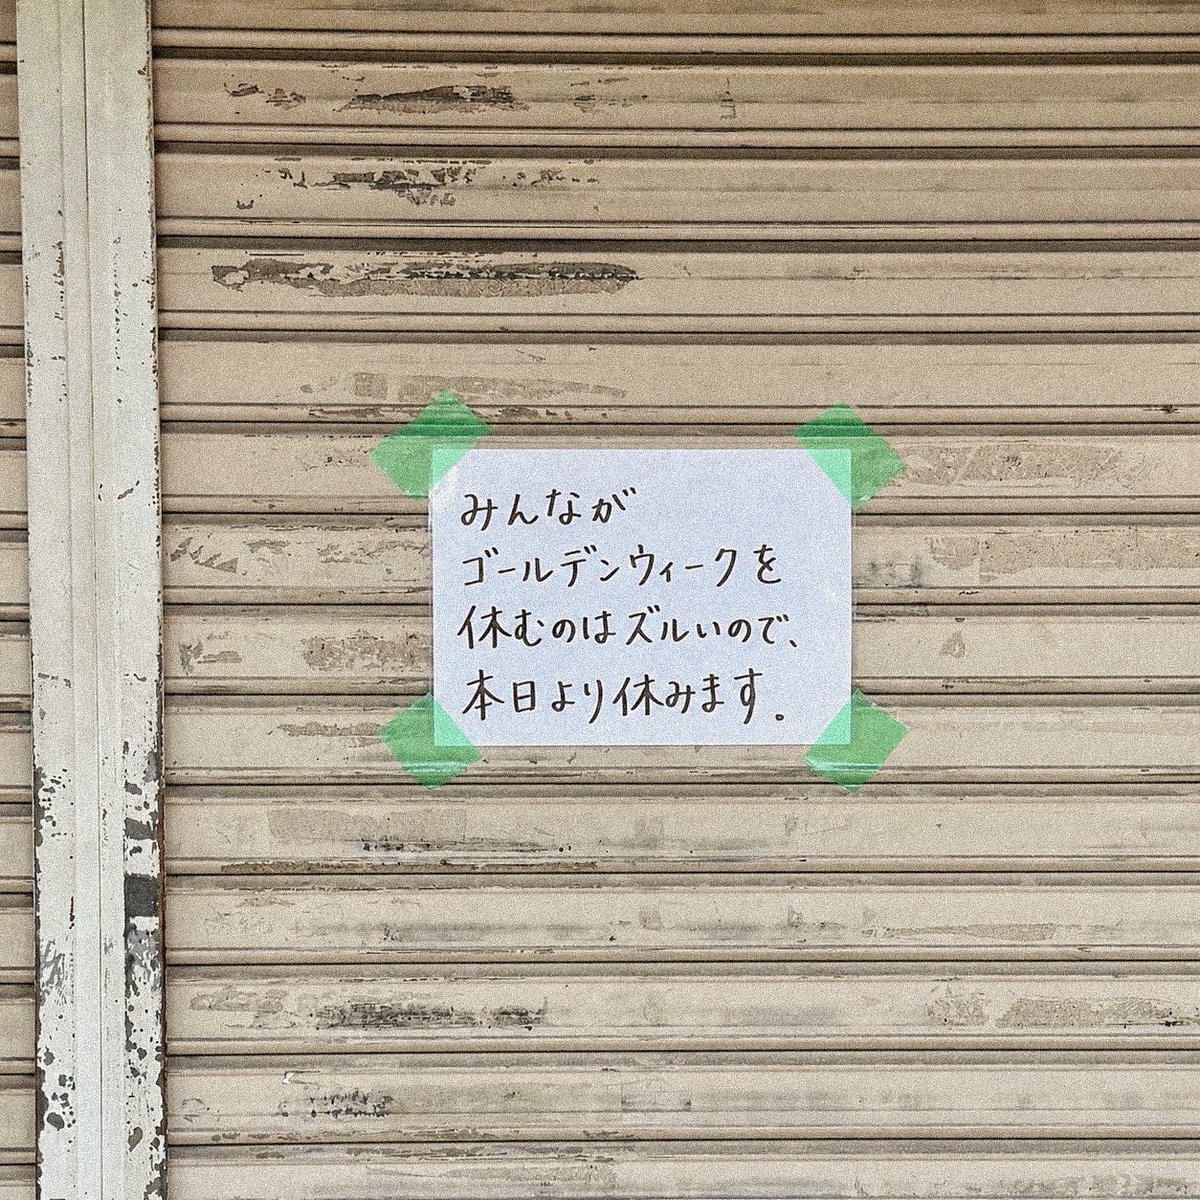 みんなが
ゴールデンウィークを
休むのはズルいので、
本日より休みます。